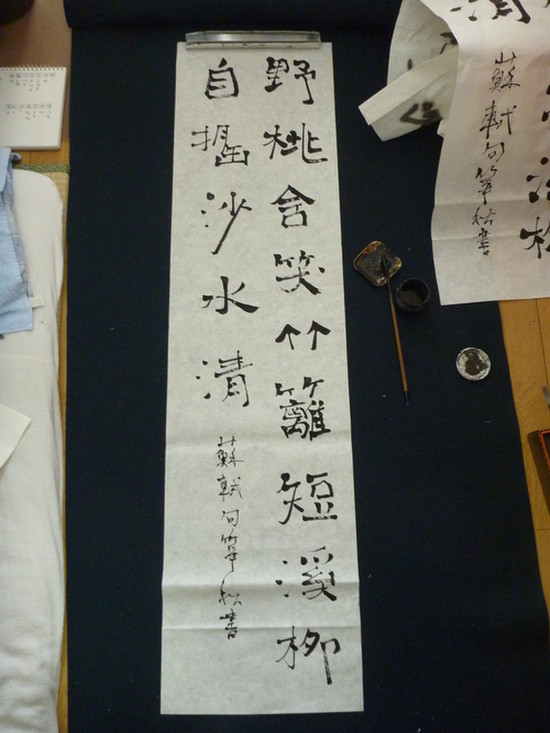 野桃含笑竹籬短溪柳
自搖沙水清
蘇軾句
書
清
蘇軾句
書